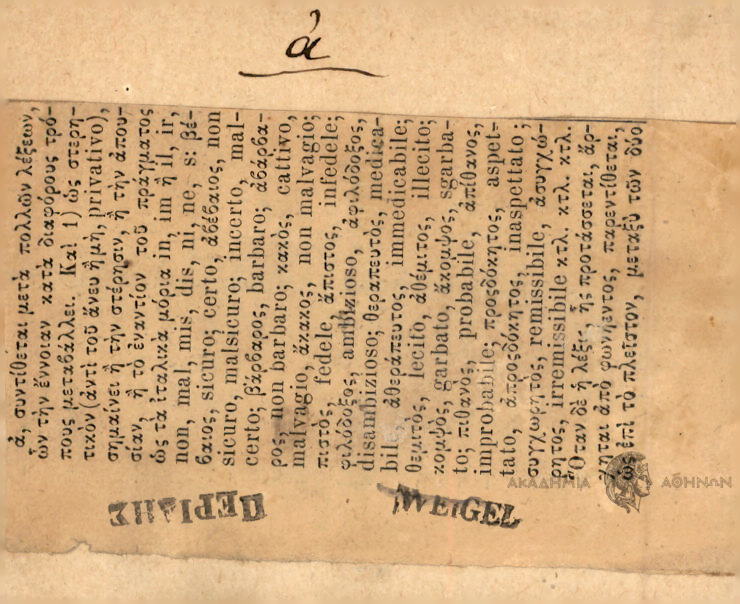 ἀ
ἀ, συντίθεται μετὰ πολλῶν λέξεων,
ὧν τὴν ἔννοιαν κατὰ διαφόρους τρό-
πους μεταβάλλει. Καὶ 1) ὡς στερη-
τικὸν (ἀντὶ τοῦ ἄνευ ἢ μὴ, privativo),
σημαίνει ἢ τὴν στέρησιν, ἢ τὴν ἀπου-
σίαν, ἢ τὸ ἐναντίον τοῦ πράγματος
ὡς τὰ ἰταλικὰ μόρια in, im ἢ il, ir,
non, mal, mis, dis, ni, ne, s: βέ-
βαιος, sicuro; certo, ἀβέβαιος, non
sicuro, malsicuro; incerto, mal-
certo; βάρβαρος, barbaro; ἀβάρβα-
ρος, non barbaro; κακὸς, cattivo,
malvagio, ἄκακος, non malvagio;
πιστὸς, fedele, ἄπιστος, infedele;
φιλόδοξος, ambizioso, ἀφιλόδοξος,
disambizioso; θεραπευτὸς, medica-
bile, ἀθεράπευτος, immedicabile;
θεμιτὸς, lecito, ἀθέμιτος, illecito;
κομψὸς, garbato, ἄκομψος, sgarba-
to; πιθανὸς, probabile, ἀπίθανος,
improbabile; προςδόκητος, aspet-
tato, ἀπροςδόκητος, inaspettato;
συγχωρητὸς, remissibile, ἀσυγχώ-
ρητος, irremissibile κτλ. κτλ. κτλ.
Ὅταν δὲ ἡ λέξις, ἧς προτάσσεται, ἄρ-
χηται ἀπὸ φωνήεντος, παρεντίθεται,
ὡς ἐπὶ τὸ πλεῖστον, μεταξὺ τῶν δύο
ΠΕΡΙΔΗΣ
WEIGEL
ΑΚΑΔΗΜΙΑ ΑΘΗΝΩΝ